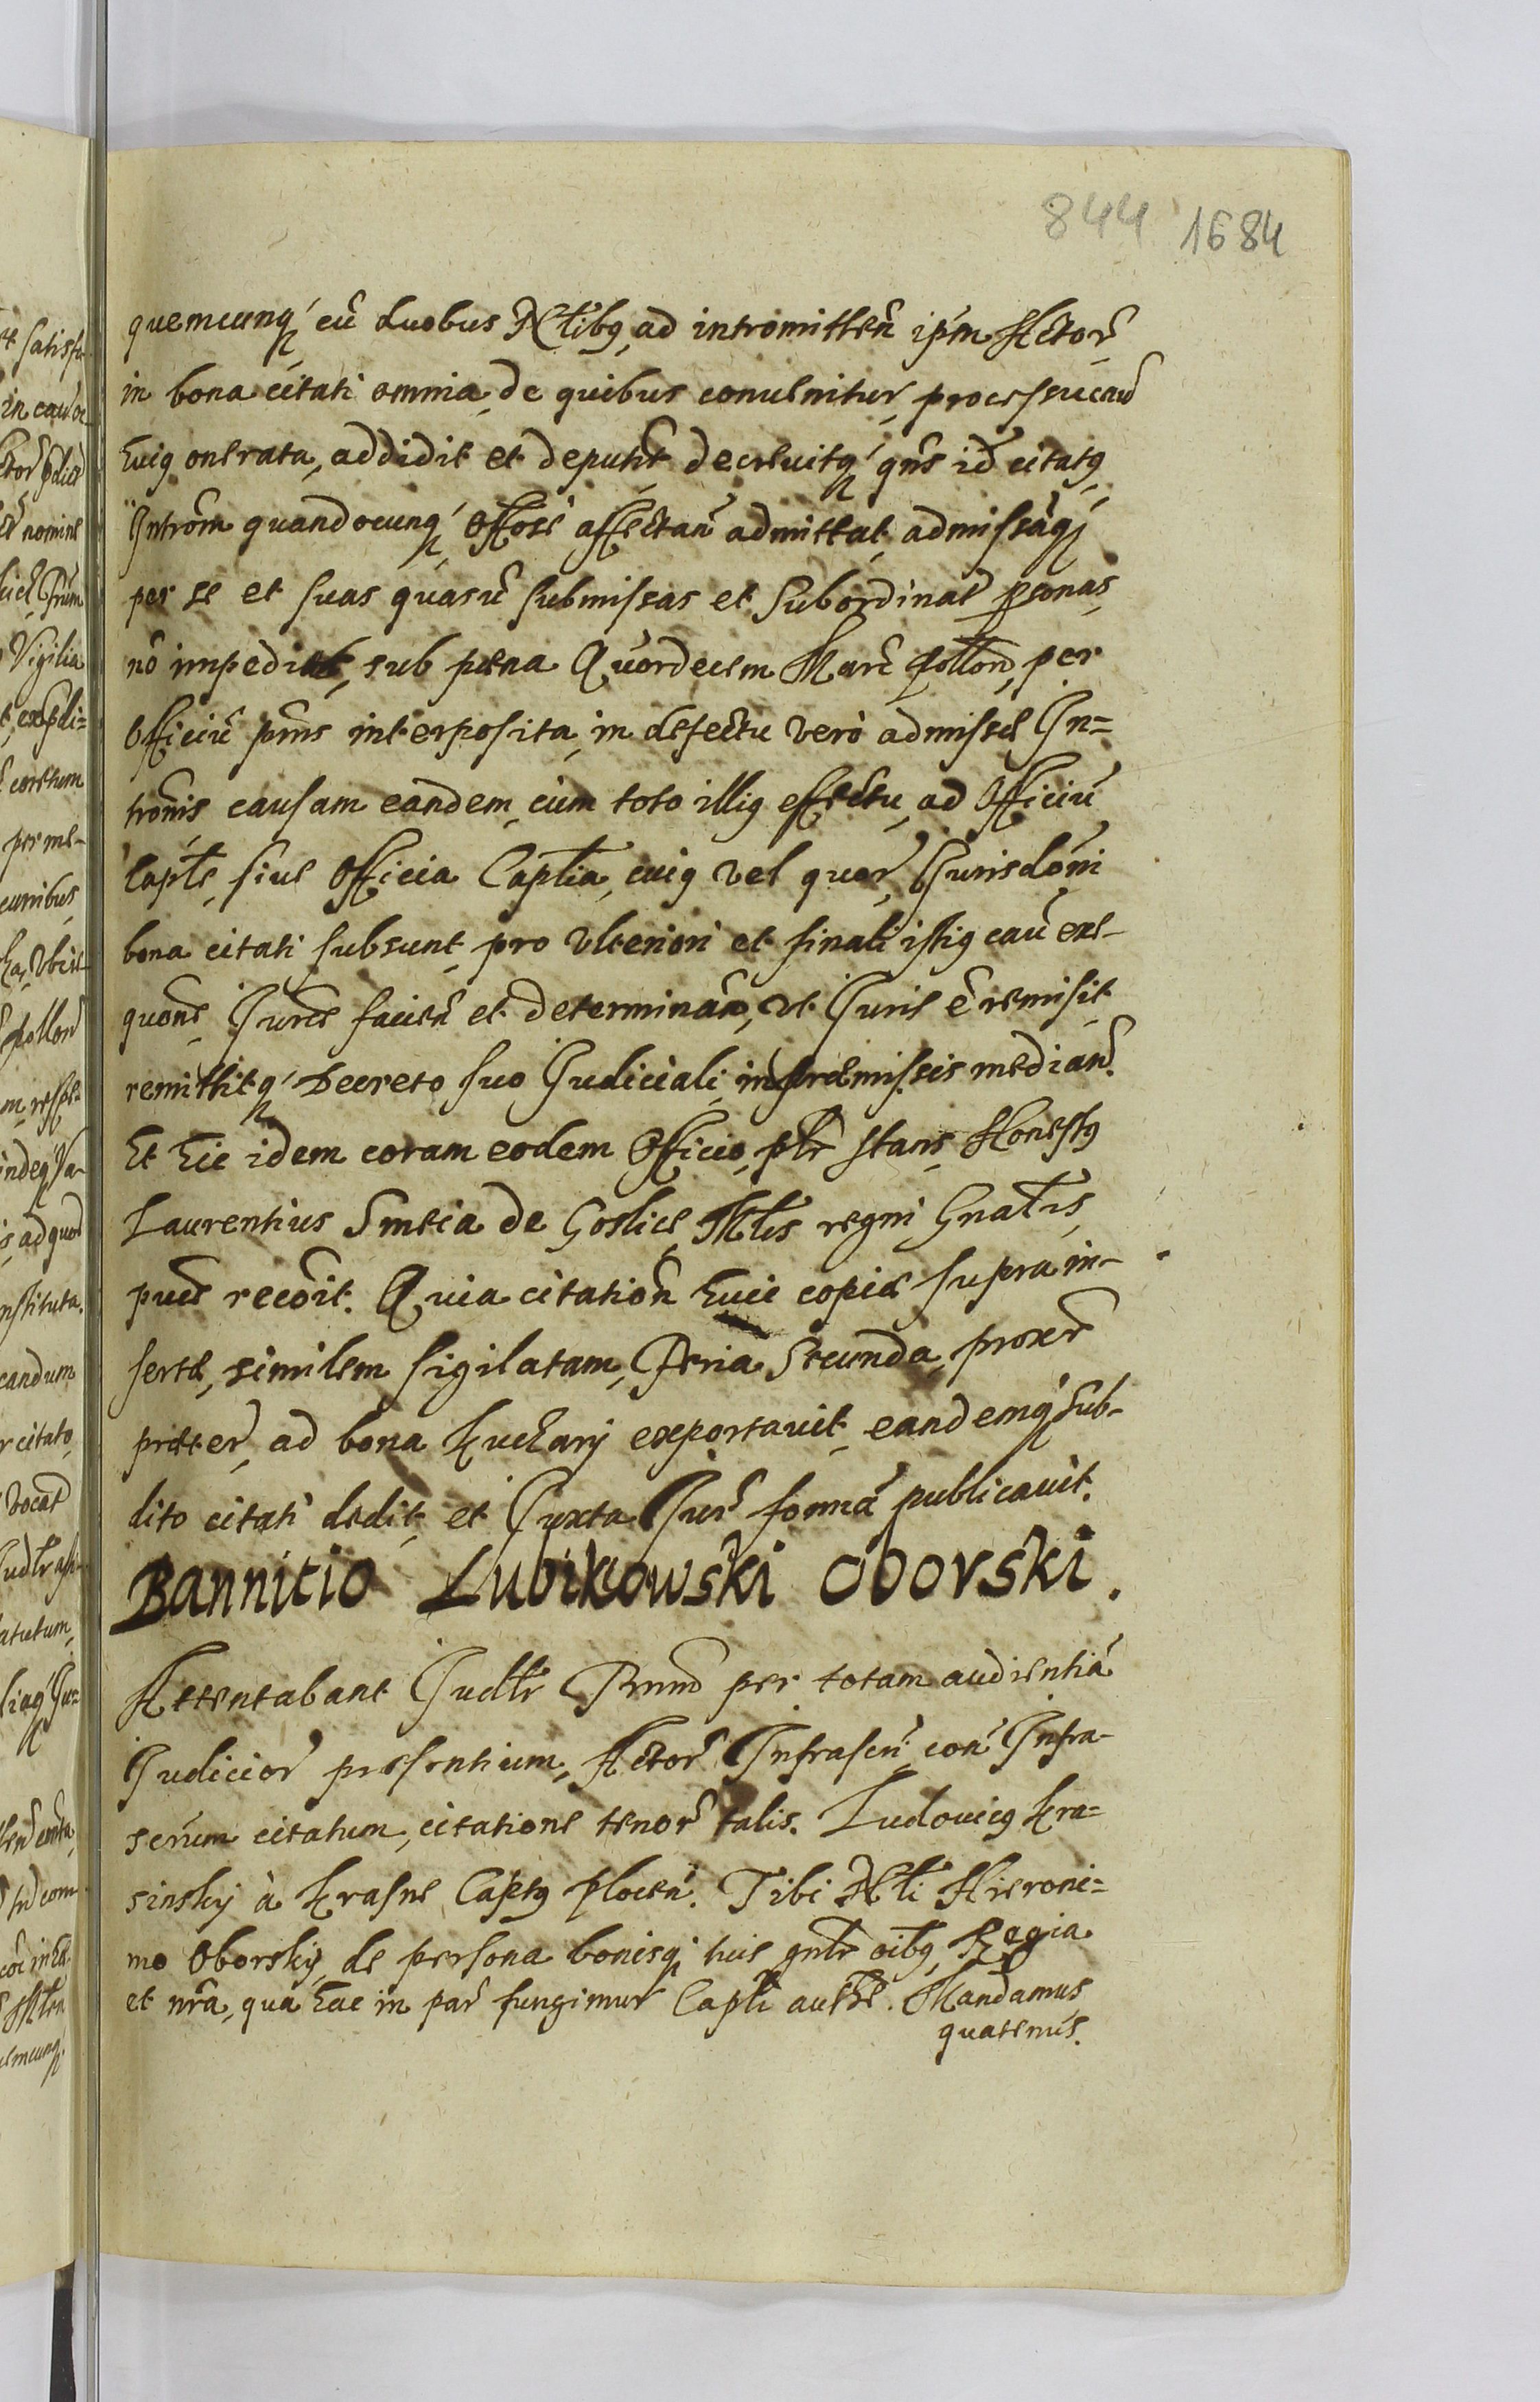 844 1684
quemcunq́ cũ duobus Nłibq, ad intromitteñ ipm̃ Actor̃
in bona citati omnia, de quibus conuenitur, processucaũ
huiq onerata, addidit et deputat̃ decreuitq́ qñs id̃ citatq
Introm̃ quandocunq́ Offose affectañ admittat, admissãq́
per se et suas quasũ submissas et subordinat̃ psonas,
nõ impediat, sub pœna Quordecem Marc̃ pollon̄, per
Officiũ pm̃s interposita, in defectu verò admissæ In=
trom̃is causam eandem, cum toto illiq effectu, ad Officiũ
Capłe, siue Officia Capłia, cuiq vel quor̃, Jurisdom̃i
bona citati subsunt, pro vlteriori et finali istiq cau exe-
quone Juris facień et determinãn, vt Juris ẽ remisit
remittitq́ Decreto suo Judiciali in præmissis mediañ.
Et hic idem coram eodem Officio, ptr̃ stans, Honestq
Laurentius Smecia de Goslice, Młis regni Gnałis,
pues recõit. Quia citation̄ huic copiæ supra in-
sertæ, similem sigilatam, Feria Secunda, proxr̃
præter̃, ad bona Kuchary exportauit, eandemq́ sub-
dito citati dedit, et Juxta Jur̃ formã publicauit.
Bannitio Lubikowski Oborski.
Attentabant Judłr Prim̃ per totam audientiã
Judicior̃ præsentium, Actor̃ Infrascri con̄ Infra-
scrum citatum, citatione tenor̃ talis. Ludouicq Kra=
sinsky à Krasne Capłq plocen̄. Tibi Nłi Hieroni=
mo Oborsky, de persona bonisq́ tuis gnłr oĩbq, Regia
et nr̃a, qua hac in par̃ fungimur Capłi authe. Mandamus
quatenus.